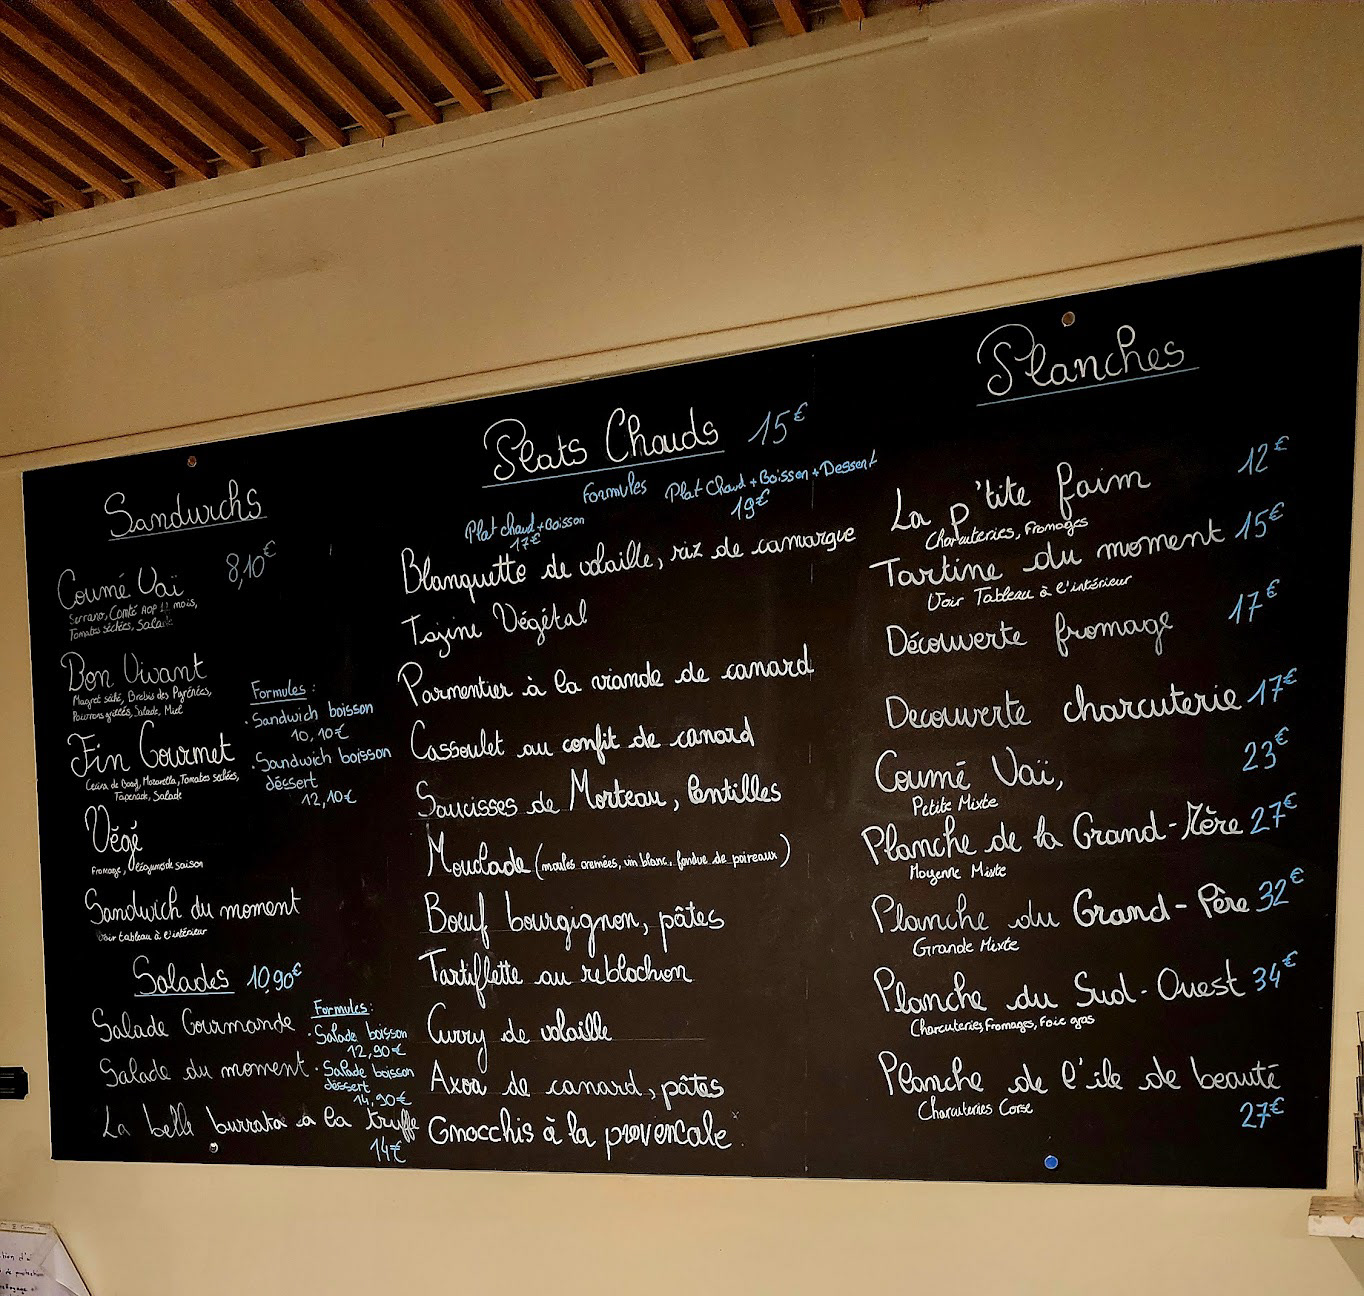 Sandwichs
8,10€
Coumé Vaï
Serrano, Comté AOP 12 mois,
Tomates séchées, Salade
Bon Vivant
Magret séché, Brebis des Pyrénées,
Poivrons grillés, Salade, Miel
Fin Gourmet
Cecina de Boeuf, Mozarella, Tomates séchées,
Tapenade, Salade
Végé
Fromage, légumes de saison
Sandwich du moment
Voir tableau à l'intérieur
Formules :
. Sandwich boisson
10,10€
. Sandwich boisson
déssert
12,10€
Salades 10,90€
Salade Gourmande
Salade du moment
La belle burrata à la truffe
14€
Formules :
. Salade boisson
12,90€
. Salade boisson
déssert
14,90€
Plats Chauds 15€
Formules
Plat chaud + Boisson
17€
Plat Chaud + Boisson + Dessert
19€
Blanquette de volaille, riz de camargue
Tajine Végétal
Parmentier à la viande de canard
Cassoulet au confit de canard
Saucisses de Morteau, lentilles
Mouclade (moules cremées, vin blanc, fondue de poireaux)
Bœuf bourgignon, pâtes
Tartiflette au reblochon
Curry de volaille
Axoa de canard, pâtes
Gnocchis à la provencale
Planches
La p'tite faim 12€
Charcuteries, Fromages
Tartine du moment 15€
Voir Tableau à l'intérieur
Découverte fromage 17€
Decouverte charcuterie 17€
Coumé Vaï, 23€
Petite Mixte
Planche de la Grand-Mère 27€
Moyenne Mixte
Planche du Grand-Père 32€
Grande Mixte
Planche du Sud-Ouest 34€
Charcuteries, Fromages, Foie gras
Planche de l'ile de beauté
Charcuteries Corse
27€